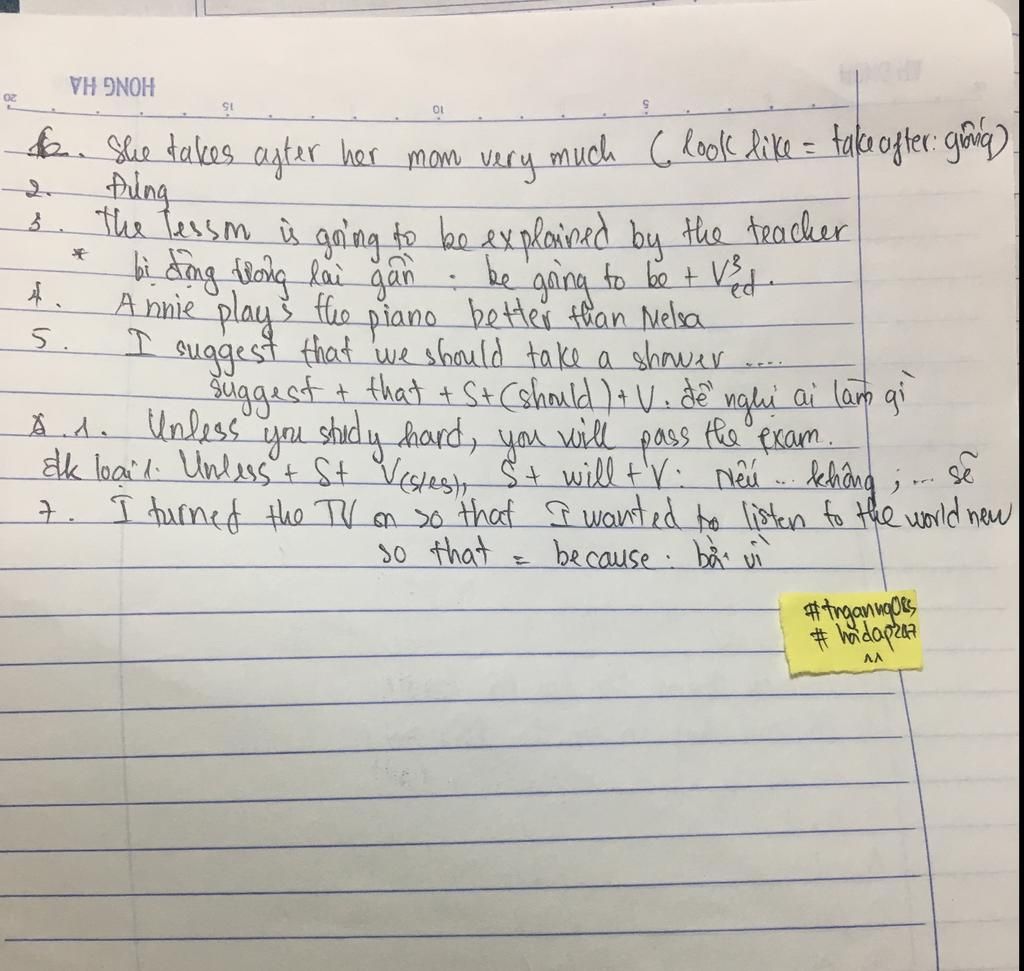 HONG HA
20 15 10 5
6. She takes after her mom very much (look like = take after: giống)
2. Đúng
3. The lesson is going to be explained by the teacher
* bị động tương lai gần : be going to be + V3 ed.
4. Annie plays the piano better than Nelsa
5. I suggest that we should take a shower ....
suggest + that + S+(should)+V: đề nghị ai làm gì
1. Unless you study hard, you will pass the exam.
đk loại 1: Unless + S+ V(s/es), S + will + V: Nếu ... không ; ... sẽ
7. I turned the TV on so that I wanted to listen to the world new
so that = because : bởi vì
#hoidap247
^^